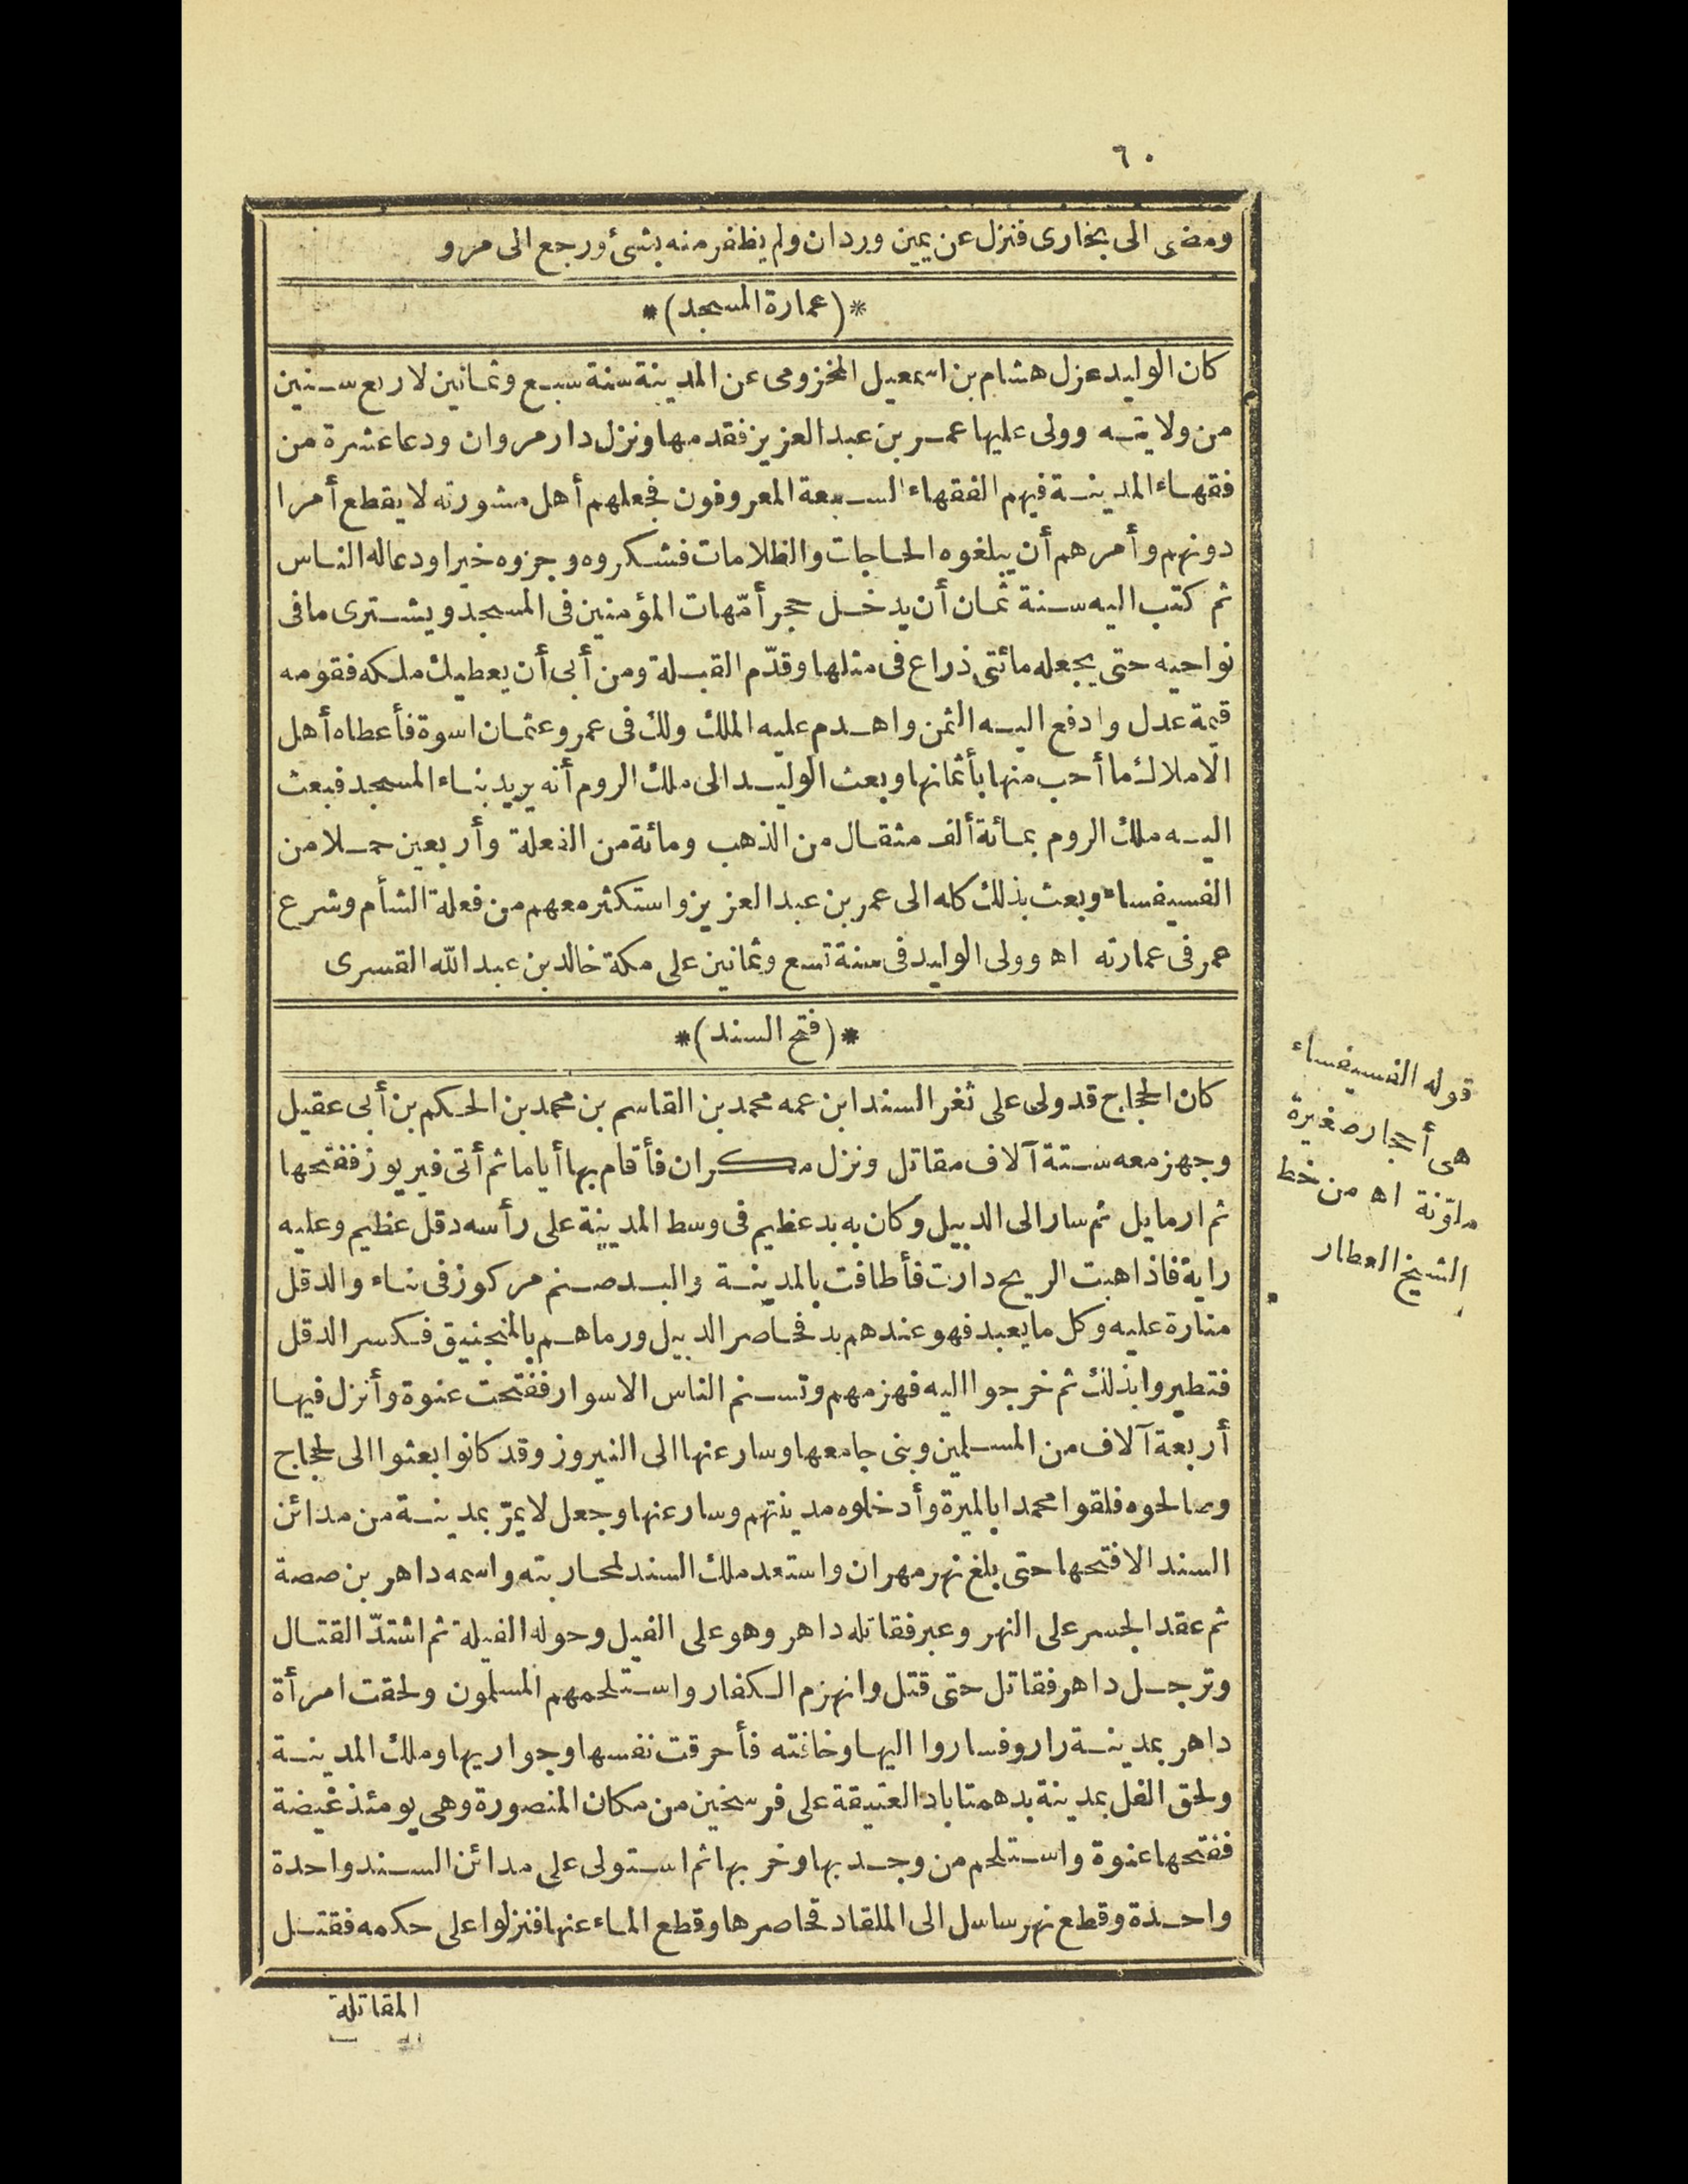 ٦٠
ومضى الى بخارى فنزل عن يمين وردان ولم يظفر منه بشئ ورجع الى مرو
*(عمارة المسجد)*
كان الوليد عزل هشام بن اسمعيل المخزومى عن المدينة سنة سبع وثمانين لاربع سنين
من ولايته وولى عليها عمر بن عبد العزيز فقدمها ونزل دار مروان ودعا عشرة من
فقهاء المدينة فيهم الفقهاء السبعة المعروفون فجعلهم أهل مشورته لا يقطع أمرا
دونهم وأمرهم أن يبلغوه الحاجات والظلامات فشكروه وجزوه خيرا ودعاله الناس
ثم كتب اليه سنة ثمان أن يدخل حجر أمّهات المؤمنين فى المسجد ويشترى ما فى
نواحيه حتى يجعله مائتى ذراع فى مثلها وقدّم القبلة ومن أبى أن يعطيك ملكه فقومه
قيمة عدل وادفع اليه الثمن واهدم عليه الملك ولك فى عمر وعثمان اسوة فأعطاه أهل
الاملاك ما أحب منها بأثمانها وبعث الوليد الى ملك الروم أنه يريد بناء المسجد فبعث
اليه ملك الروم بمائة ألف مثقال من الذهب ومائة من الفعلة وأربعين حملا من
الفسيفساء وبعث بذلك كله الى عمر بن عبد العزيز واستكثر معهم من فعلة الشأم وشرع
عمر فى عمارته اه وولى الوليد فى سنة تسع وثمانين على مكة خالد بن عبد الله القسرى
*(فتح السند)*
كان الحجاج قد ولى على ثغر السند ابن عمه محمد بن القاسم بن محمد بن الحكم بن أبى عقيل
وجهز معه ستة آلاف مقاتل ونزل مكران فأقام بها أياما ثم أتى فيريوز ففتحها
ثم ارمايل ثم سار الى الدبيل وكان به بد عظيم فى وسط المدينة على رأسه دقل عظيم وعليه
راية فاذا هبت الريح دارت فأطافت بالمدينة والبد صنم مركوز فى بناء والدقل
منارة عليه وكل ما يعبد فهو عندهم بد فحاصر الدبيل ورماهم بالمنجنيق فكسر الدقل
فتطيروا بذلك ثم خرجوا اليه فهزمهم وتسنم الناس الاسوار ففتحت عنوة وأنزل فيها
أربعة آلاف من المسلمين وبنى جامعها وسار عنها الى النيروز وقد كانوا بعثوا الى لحجاج
وصالحوه فلقوا محمدا بالميرة وأدخلوه مدينتهم وسار عنها وجعل لا يمرّ بمدينة من مدائن
السند الا فتحها حتى بلغ نهر مهران واستعد ملك السند لمحاربته واسمه داهر بن صصة
ثم عقد الجسر على النهر وعبر فقاتله داهر وهو على الفيل وحوله الفيلة ثم اشتدّ القتال
وترجل داهر فقاتل حتى قتل وانهزم الكفار واستلحمهم المسلمون ولحقت امرأة
داهر بمدينة راروفساروا اليها وخافته فأحرقت نفسها وجواريها وملك المدينة
ولحق الفل بمدينة بدهمتاباد العتيقة على فرسخين من مكان المنصورة وهى يومئذ غيضة
ففتحها عنوة واستلحم من وجد بها وخربها ثم استولى على مدائن السند واحدة
واحدة وقطع نهر ساسل الى الملقاد فحاصرها وقطع الماء عنها فنزلوا على حكمه فقتل
المقاتلة
قوله الفسيفساء
هى أحجار صغيرة
ملوّنة اه من خط
الشيخ العطار